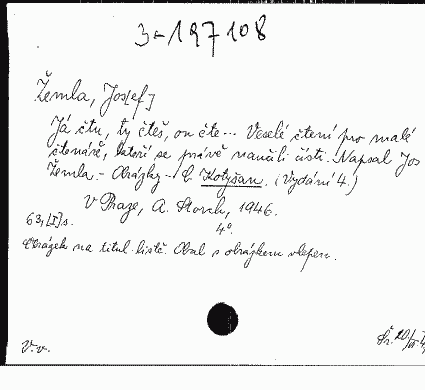 3-197108
Žemla, Jos[ef]
Já čtu, ty čteš, on čte... Veselé čtení pro malé
čtenáře, kteří se právě naučili čísti. Napsal Jos
Žemla. - Obrázky - C. Kotyšan. (Vydání 4.)
V Praze, A. Storch, 1946.
63,[I] s.
4°.
Obrázek na titul. listě. Obal s obrázkem vlepen.
V.v.